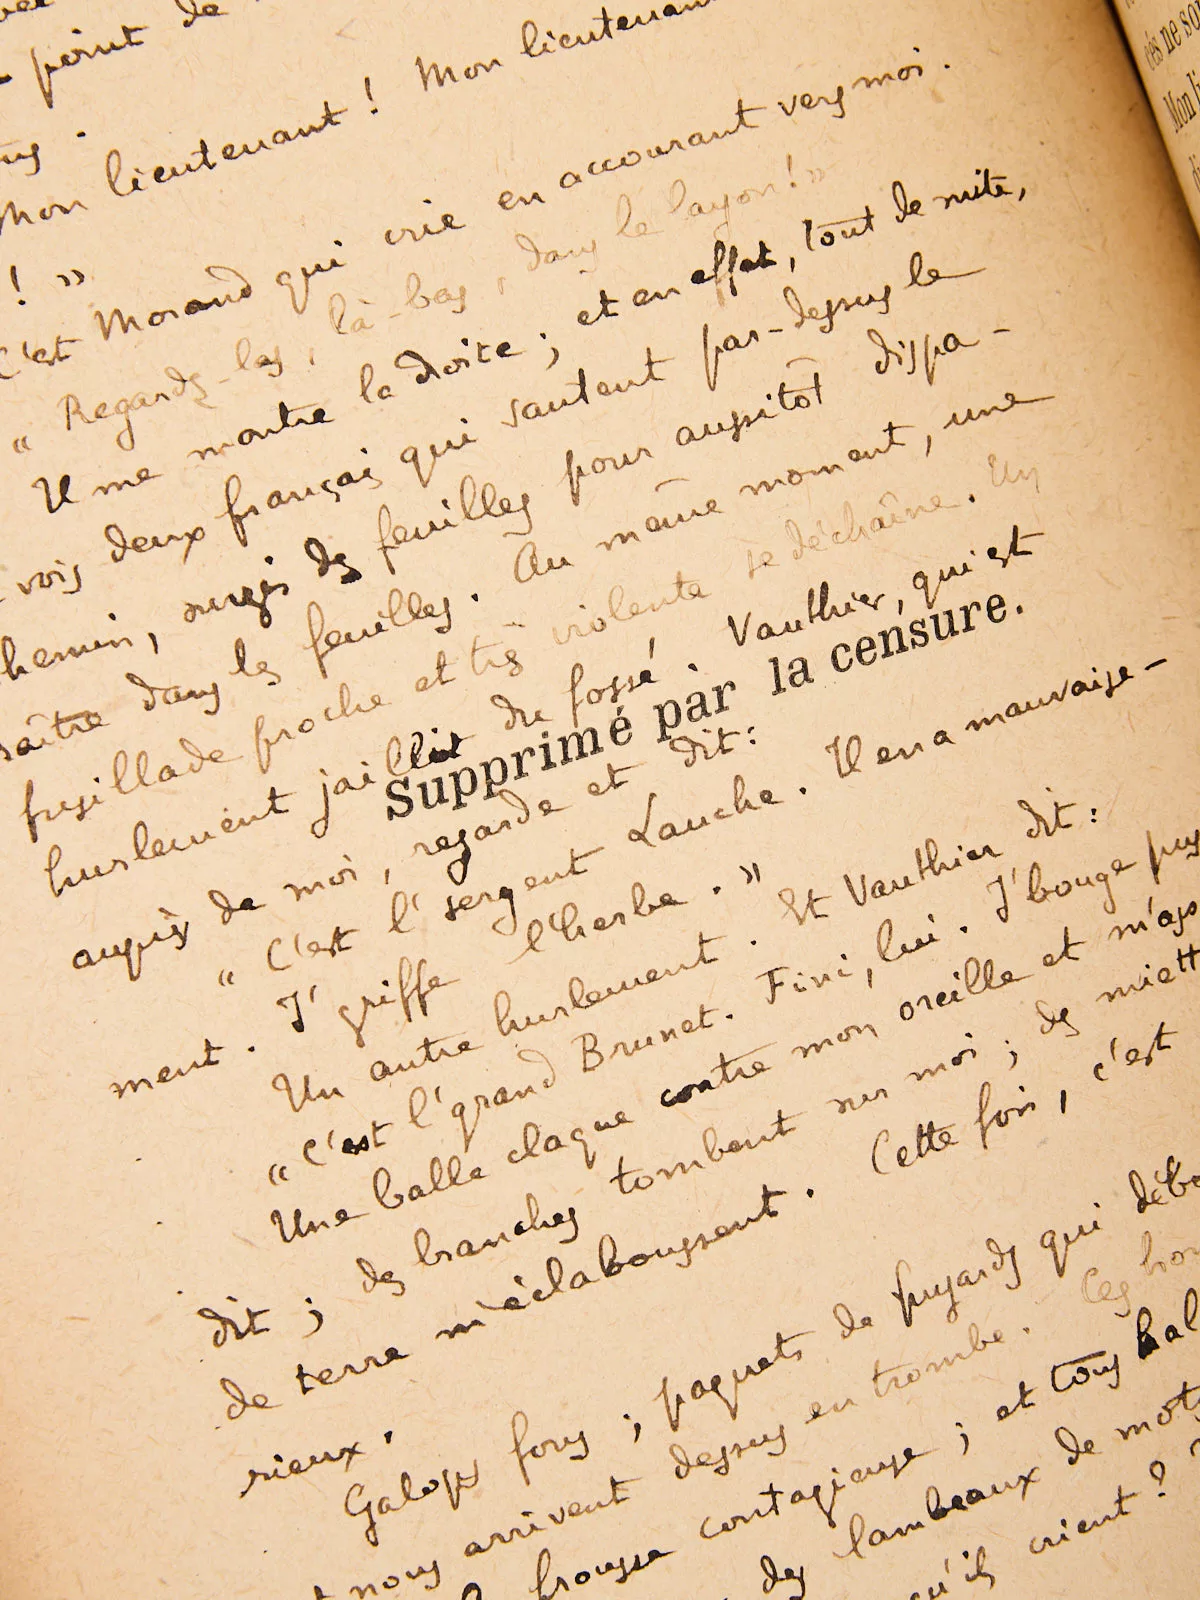 point de
Mon lieutenant ! Mon lieutenant
! »
C'est Morand qui crie en accourant vers moi.
« Regards-les, là-bas, dans le layon ! »
Il me montre la droite ; et en effet, tout de suite,
vois deux français qui sautent par-dessus le
hemin, surgis des feuilles pour aussitôt dispa-
raître dans les feuilles. Au même moment, une
fusillade proche et très violente se déchaîne. Un
hurlement jaillit du fossé. Vauthier, qui est
Supprimé par la censure.
auprès de moi, regarde et dit :
« C'est l' sergent Lauche. Il en a mauvaise-
ment. J' griffe l'herbe. »
Un autre hurlement. Et Vauthier dit :
« C'est l' grand Brunet. Fini, lui. I' bouge pus
Une balle claque contre mon oreille et m'as
dit ; des branches tombent sur moi ; des miett
de terre m'éclaboussent. Cette fois, c'est
rieux.
Galops fous ; paquets de fuyards qui débo
nous arrivent dessus en trombe. Ces hom
frousse contagieuse ; et tous hal
des lambeaux de mots
qu'ils crient ?
cés ne so
Mon li